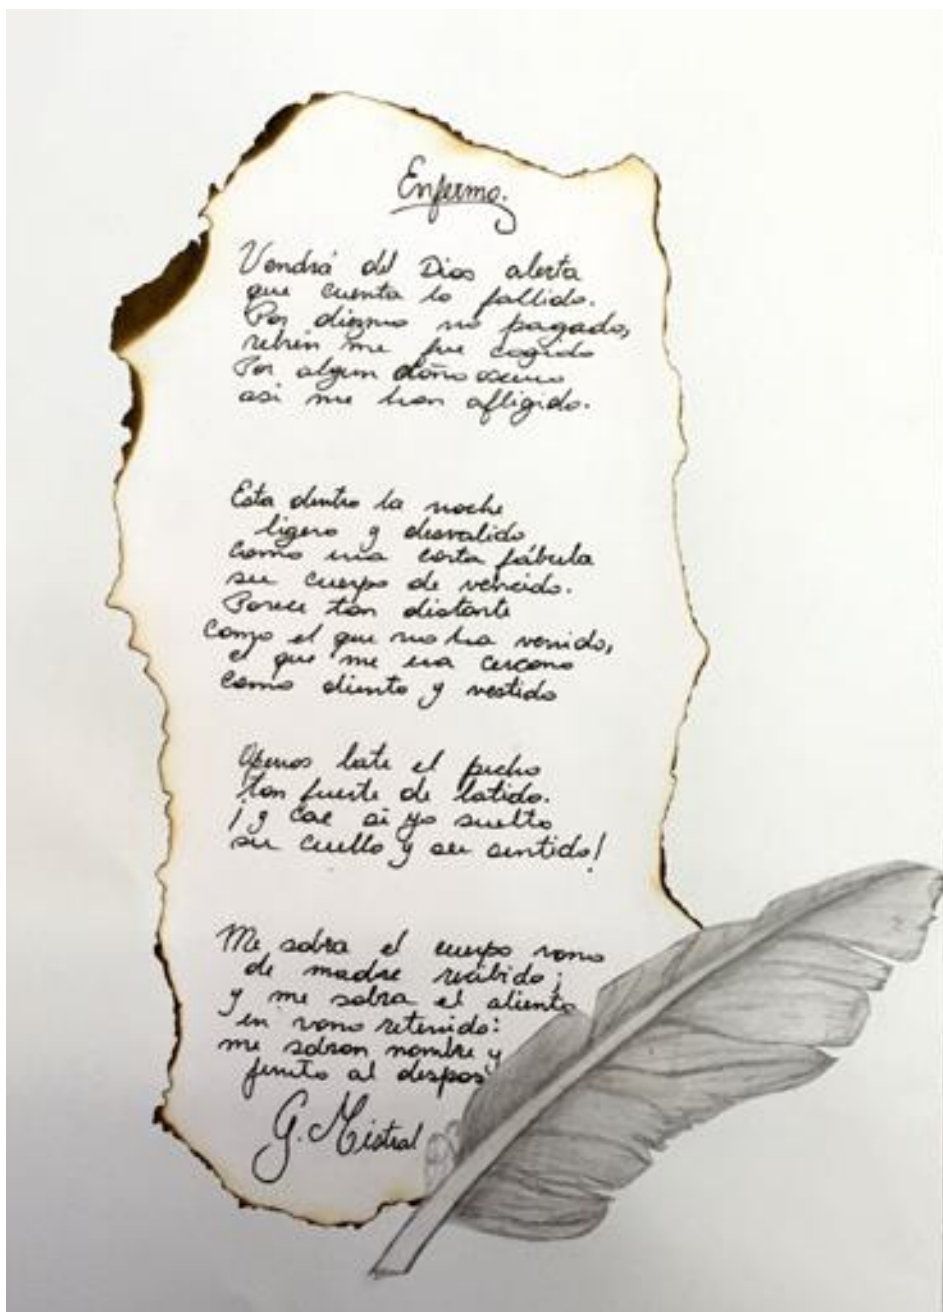 Enfermo.
Vendrá del Dios alerta
que cuenta lo fallido.
Por diezmo no pagado,
rehén me fue cogido
Por algun daño oscuro
asi me han afligido.
Esta dentro la noche
ligero y desvalido
como una corta fábula
su cuerpo de vencido.
Parece tan distante
como el que no ha venido,
el que me era cercano
como aliento y vestido
Apenas late el pecho
tan fuerte de latido.
¡y cae si yo suelto
su cuello y su sentido!
Me sobra el cuerpo vano
de madre recibido;
y me sobra el aliento
en vano retenido:
me sobran nombre y
junto al
G. Mistral